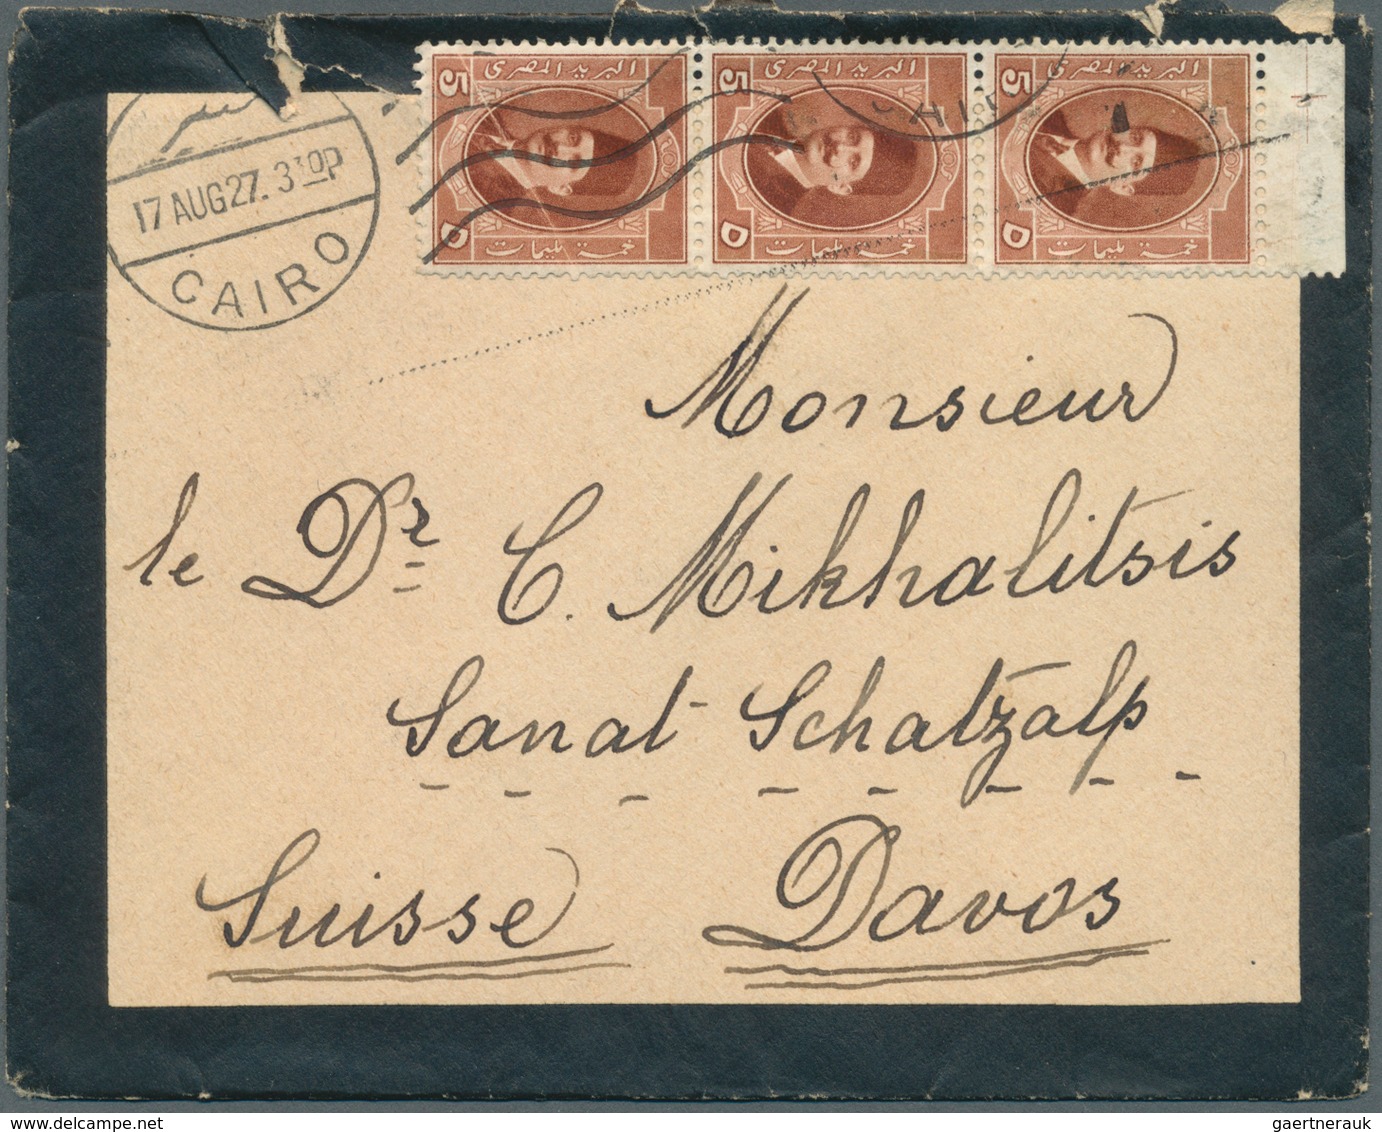 17 AUG 27. 3 30P
CAIRO
5 البريد المصرى
٥ خمسة مليمات
5 البريد المصرى
٥ خمسة مليمات
5 البريد المصرى
٥ خمسة مليمات
Monsieur
le Dr C. Mikhalitsis
Sanat Schatzalp
Suisse Davos
gaertnerauk